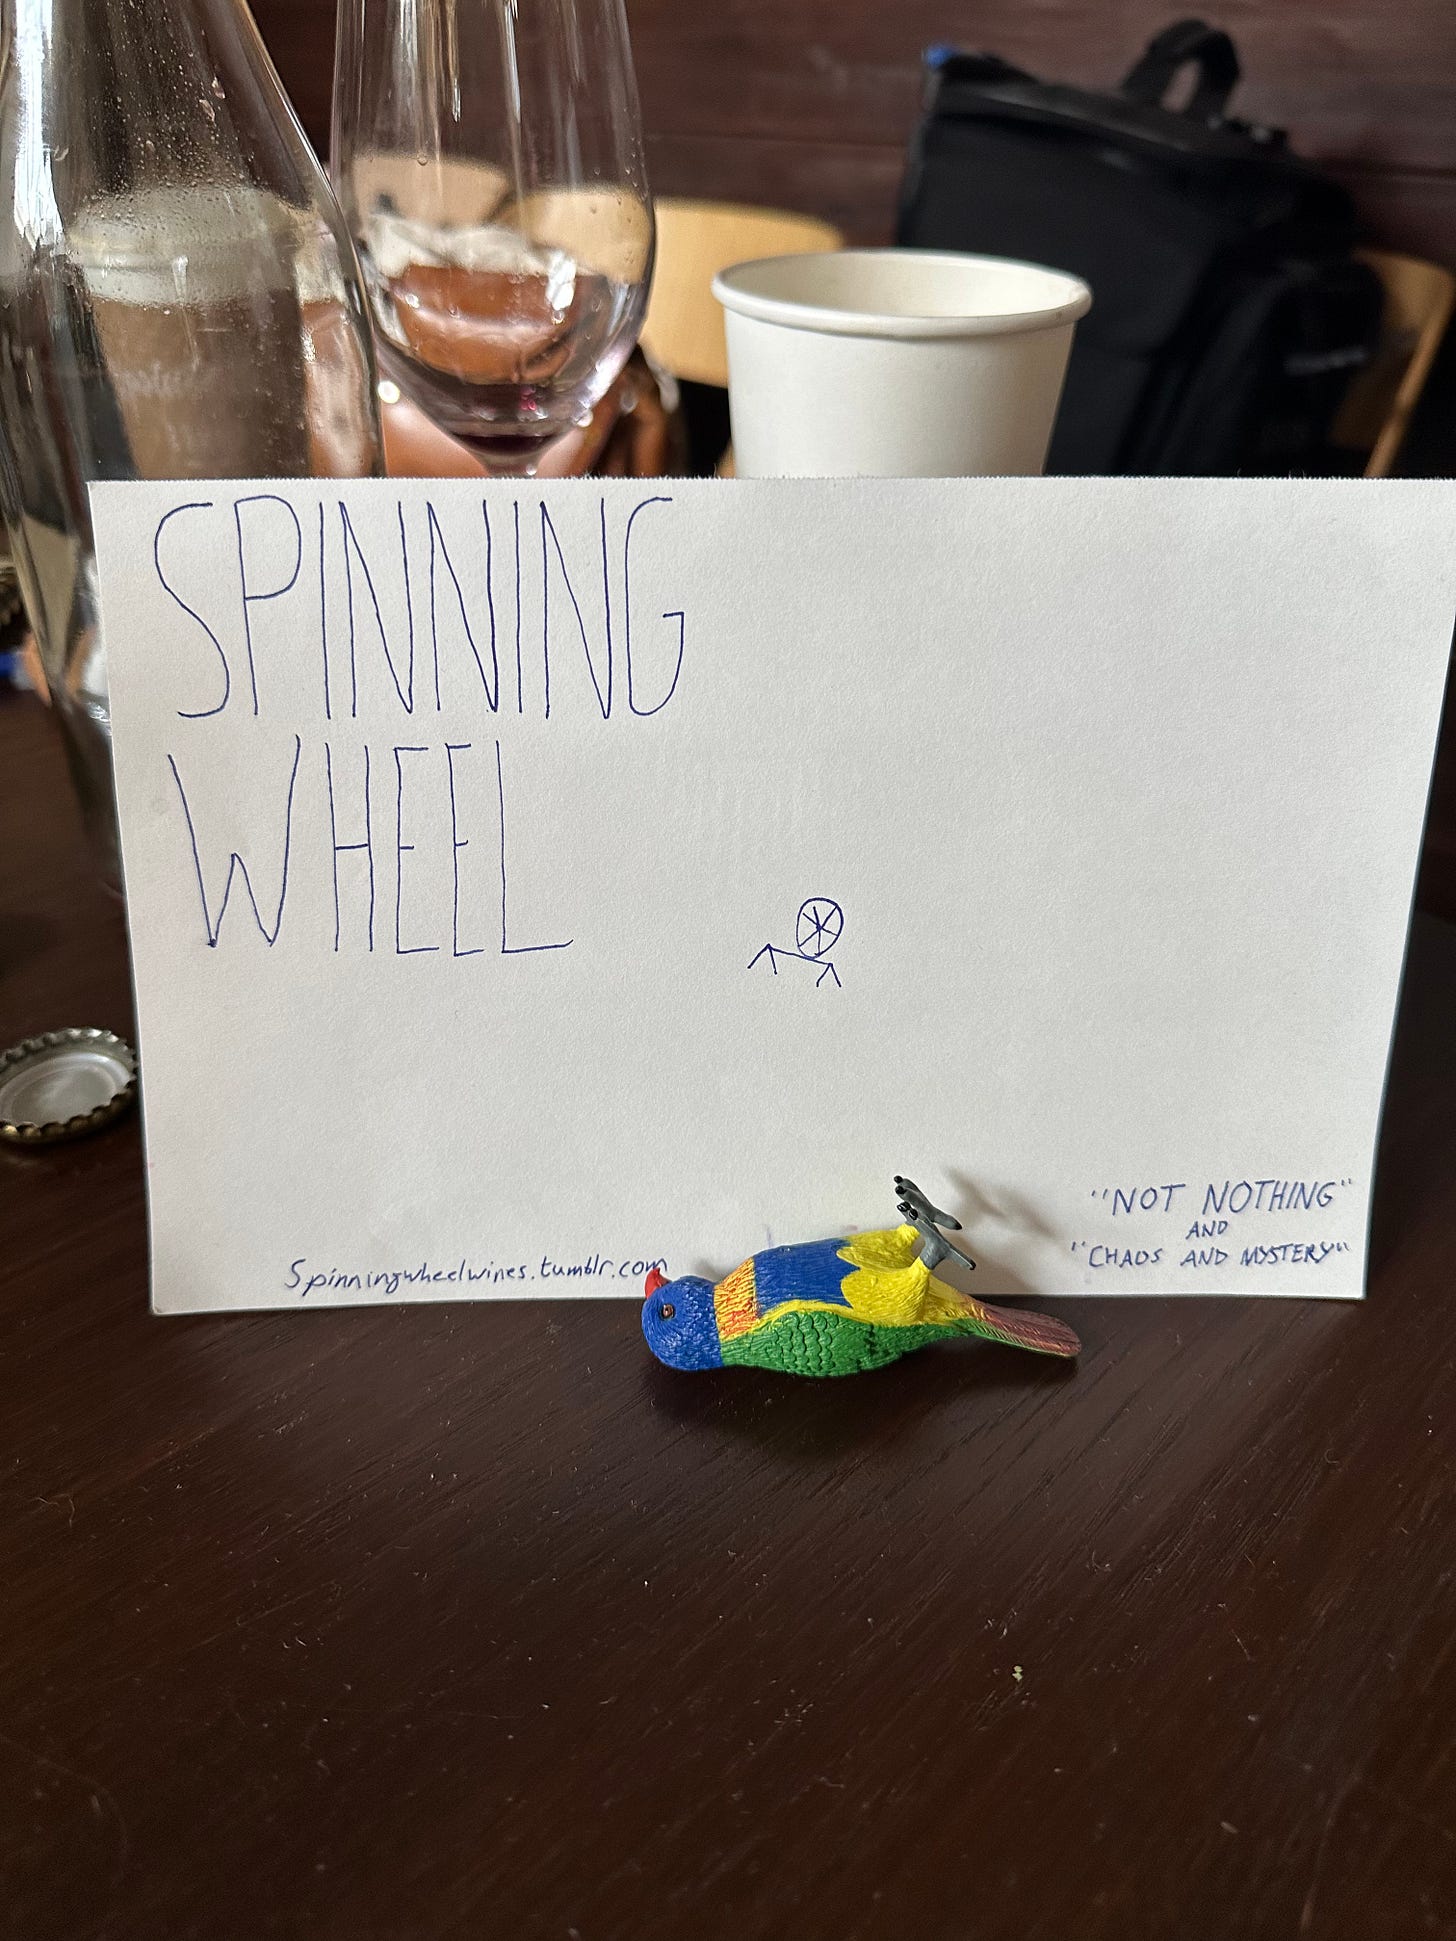 SPINNING
WHEEL
"NOT NOTHING"
AND
"CHAOS AND MYSTERY"
Spinningwheelwines.tumblr.com